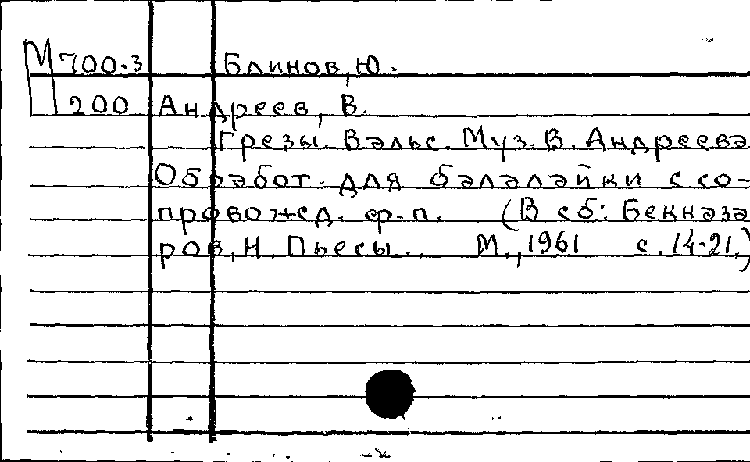 М 700-3 Блинов, Ю.
200 Андреев, В.
Грезы. Вальс. Муз. В. Андреева
Обработ. для балалайки с со-
провожд. ф-п. (В сб: Бекназа
ров, Н. Пьесы. М., 1961 с. 14-21.)